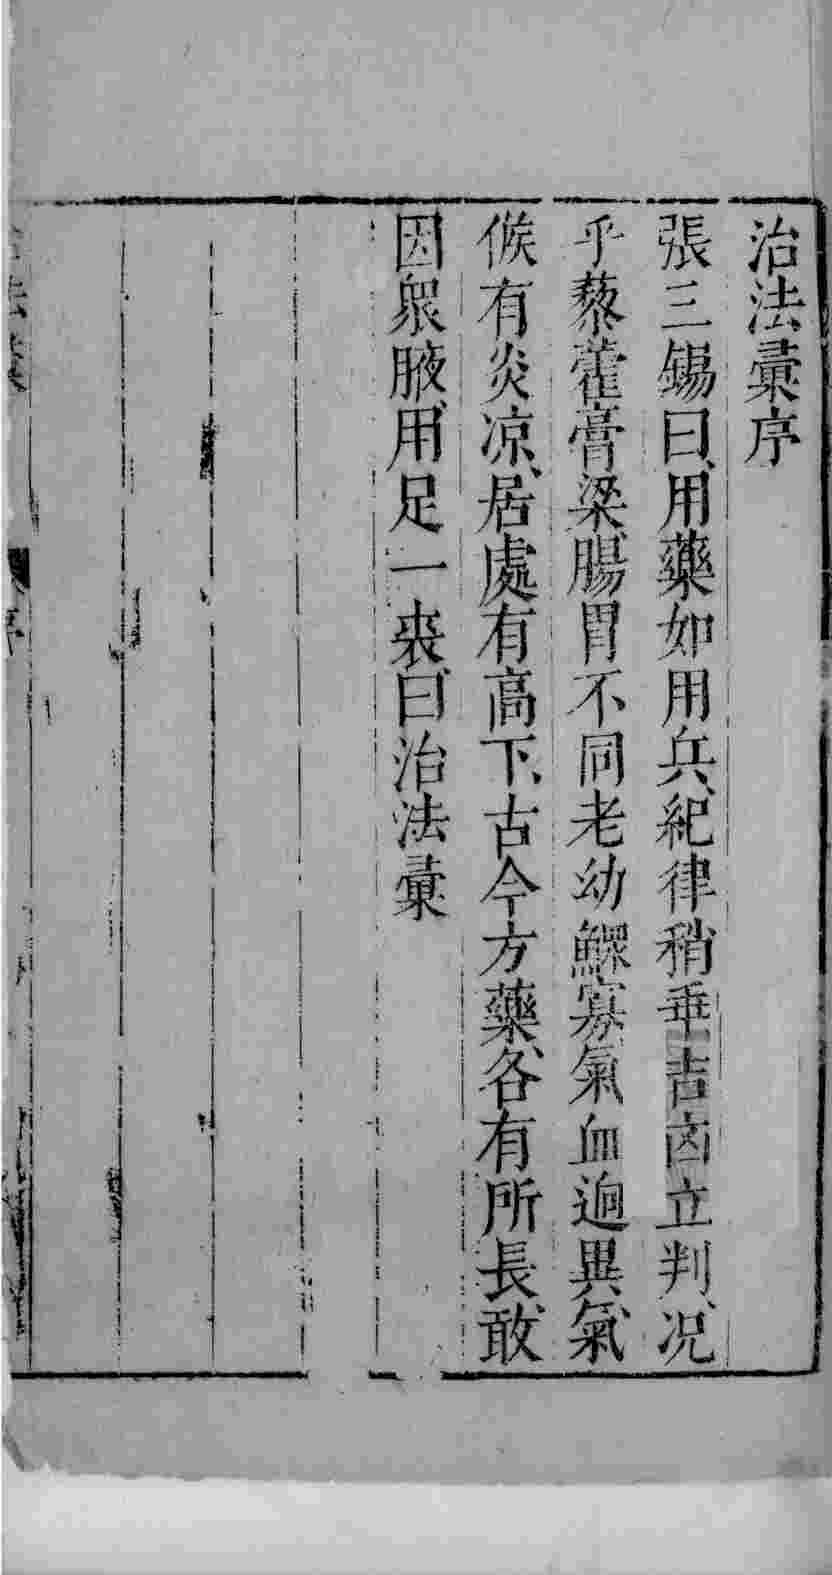 治法彙序
張三錫曰、用藥如用兵、紀律稍乖吉凶立判、况
乎藜藿膏粱、腸胃不同老幼鰥寡、氣血逈異、氣
候有炎凉、居處有高下、古今方藥、各有所長、敢
因衆腋、用足一裘、曰治法彙